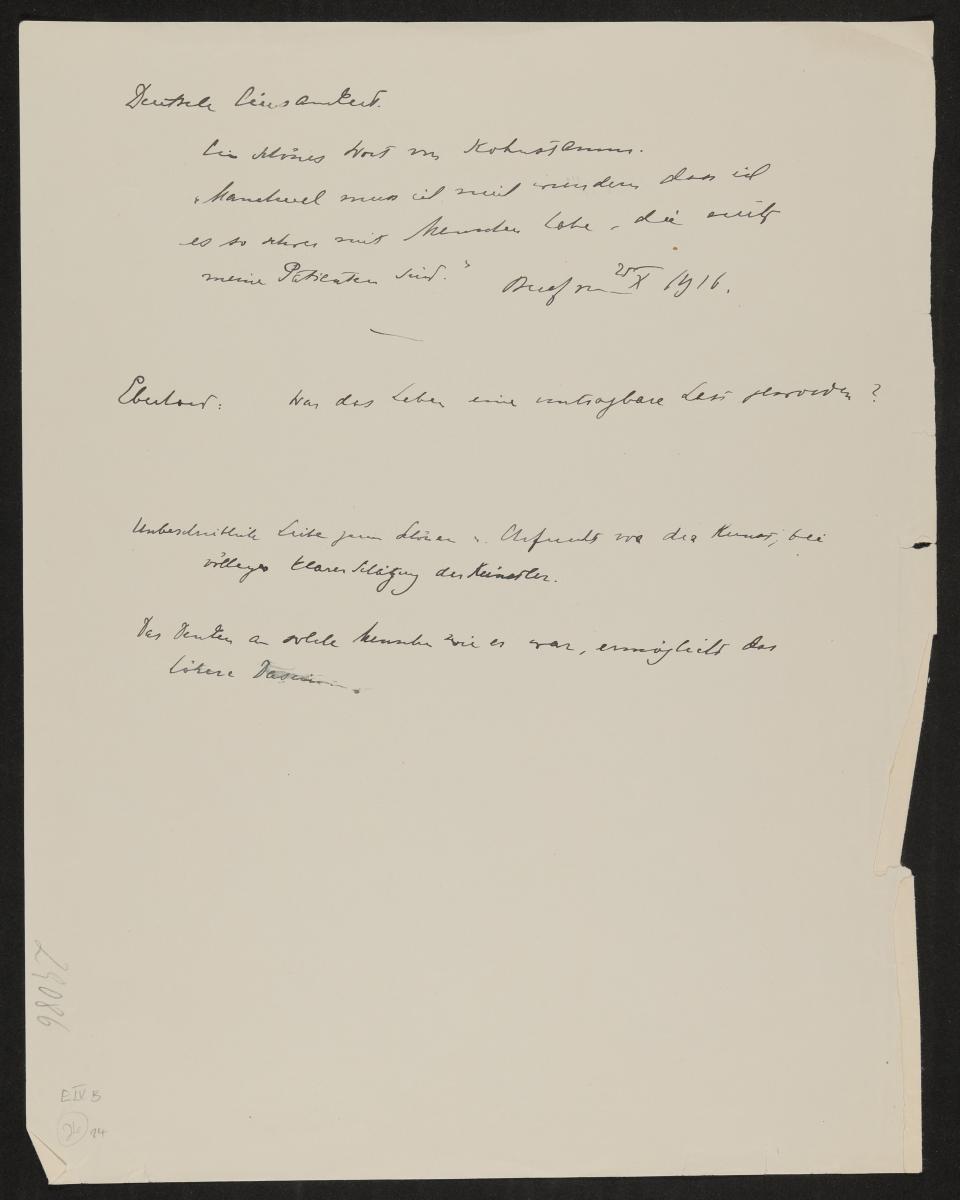 Deutsche Einsamkeit.
Ein schönes Wort von Kohnstamm.
„Manchmal muss ich mich wundern dass ich
es so schwer mit Menschen habe, die nicht
meine Patienten sind."
Brief vom X 1916.
Eberhard: War das Leben eine untragbare Last geworden?
Unbeschreibliche Liebe zum Schönen u. Ehrfurcht vor der Kunst, bei
völliger klarer Schätzung der Künstler.
Das Denken an solche Menschen wie es war, ermöglicht das
höhere Dasein.
29086
E IV B
24